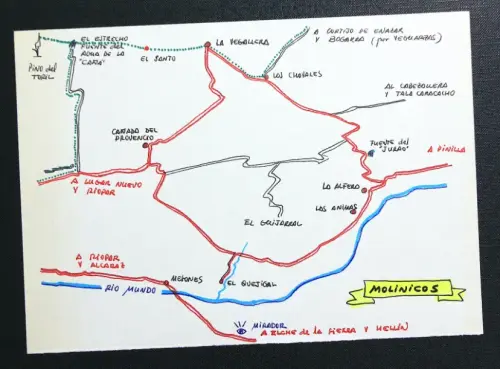 EL ESTRECHO
FUENTE DEL
AGUA DE LA
"CARA"
PINO DEL
TORIL
EL SANTO
LA VEGALLERA
A CORTIJO DE
Y BOGARRA (por YEGUARIZAS)
LOS CHORALES
AL CABEZALLERA
Y TALA CARACALHO
CAÑADA DEL
PROVENCIO
FUENTE del
"JURAO"
A PINILLA
A LUGAR NUEVO
Y RIOPAR
LA ALFERA
LAS ANIMAS
EL GUIJARRAL
A RIOPAR
Y ALCARAZ
MESONES
EL QUEJIGAL
RÍO MUNDO
MOLINICOS
MIRADOR
A ELCHE de la SIERRA Y HELLÍN